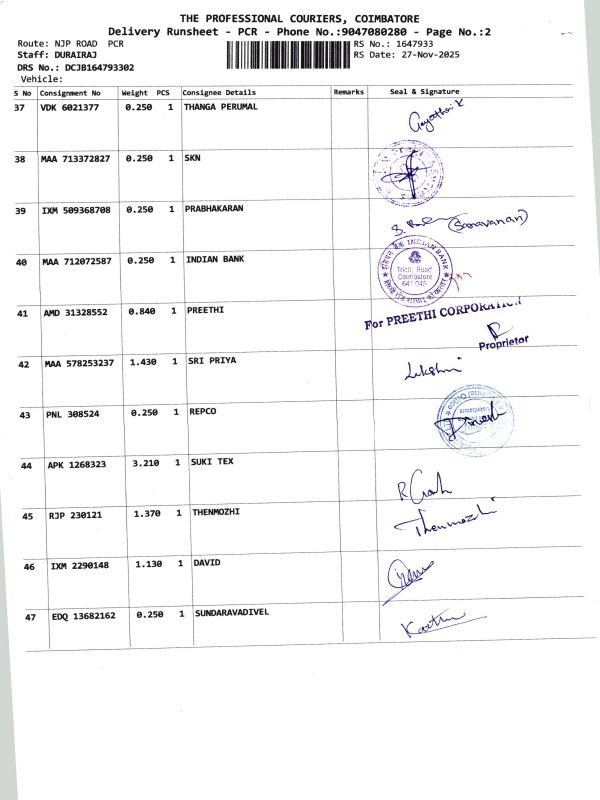 THE PROFESSIONAL COURIERS, COIMBATORE
Delivery Runsheet - PCR - Phone No.:9047080280 - Page No.:2
Route: NJP ROAD PCR RS No.: 1647933
Staff: DURAIRAJ RS Date: 27-Nov-2025
DRS No.: DCJB164793302
Vehicle:
S No Consignment No Weight PCS Consignee Details Remarks Seal & Signature
37 VDK 6021377 0.250 1 THANGA PERUMAL
38 MAA 713372827 0.250 1 SKN
39 IXM 509368708 0.250 1 PRABHAKARAN (Saravanan)
40 MAA 712072587 0.250 1 INDIAN BANK
INDIAN BANK
Trichi Road
Coimbatore
641 045
41 AMD 31328552 0.840 1 PREETHI
For PREETHI CORPORATION
Proprietor
42 MAA 578253237 1.430 1 SRI PRIYA Lakshmi
43 PNL 308524 0.250 1 REPCO
44 APK 1268323 3.210 1 SUKI TEX
45 RJP 230121 1.370 1 THENMOZHI Thenmozhi
46 IXM 2290148 1.130 1 DAVID
47 EDQ 13682162 0.250 1 SUNDARAVADIVEL